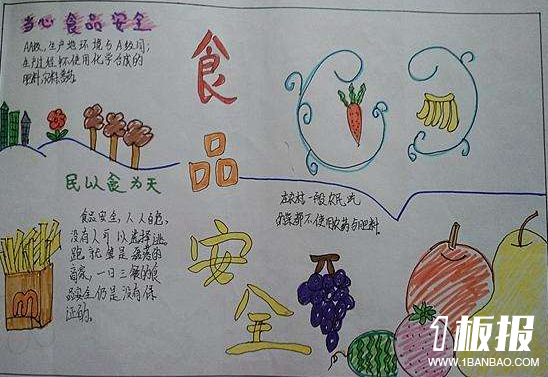 当心 食品 安全
AA级:生产地环境与A级同;
生产过程中不使用化学合成的
肥料,农药,兽药
食
品
安
全
民以食为天
食品安全,人人自危,
没有人可以选择逃
跑就算是
富家,一日三餐的食
品安全仍是没有保
证的。
在农村一般农民吃
的菜都不使用农药与肥料.
m
1板报
WWW.1BANBAO.COM